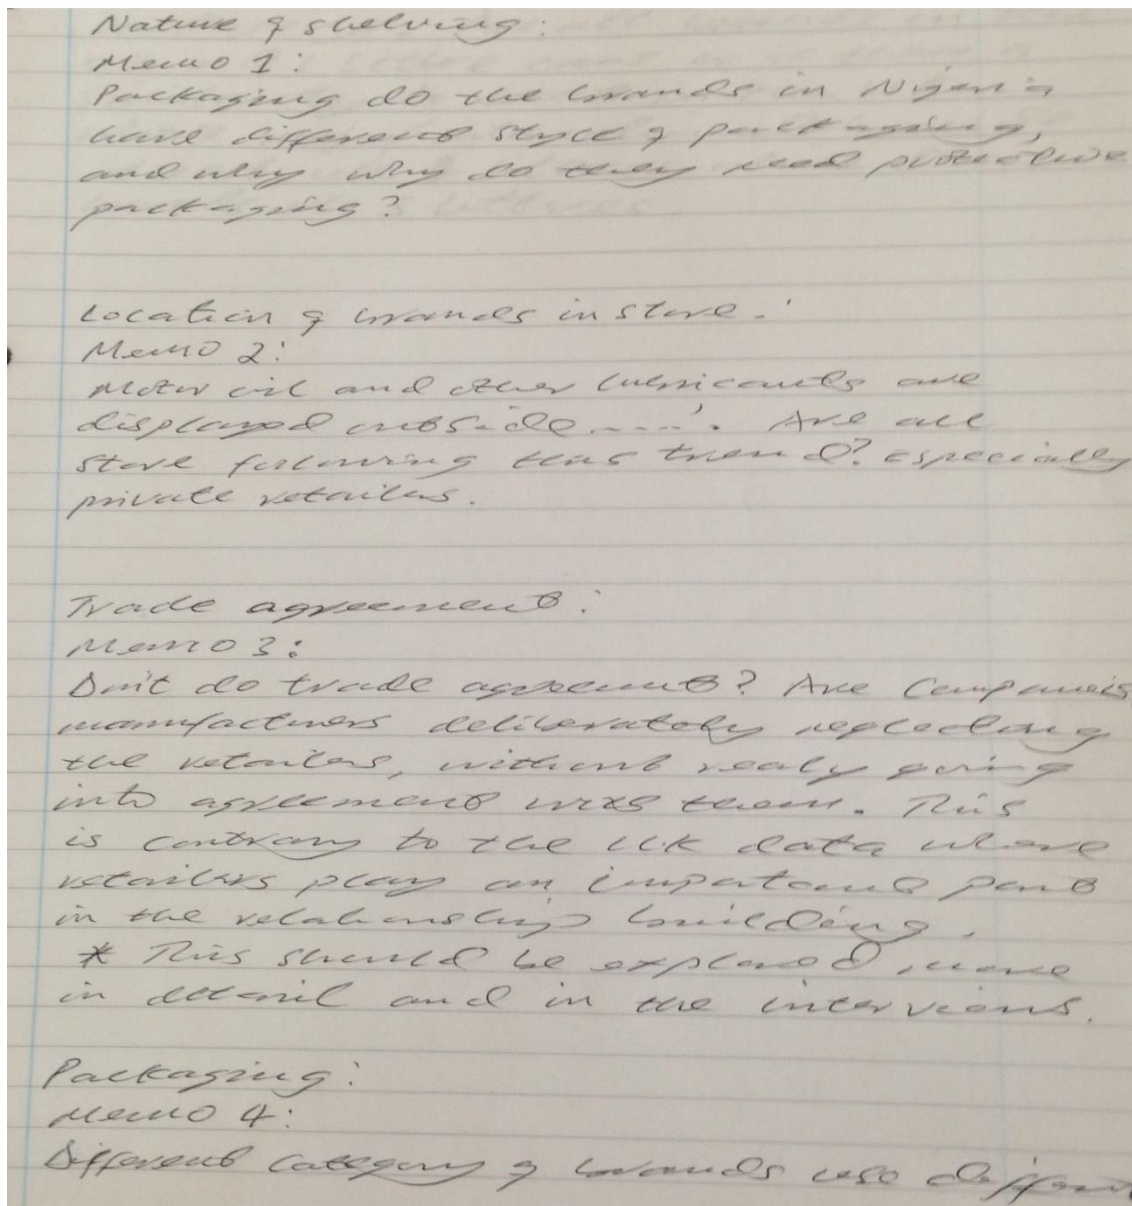 Nature of shelving:
Memo 1:
Packaging do the brands in Nigeria
have different style of packaging,
and why why do they need protective
packaging?
Location of brands in store:
Memo 2:
Motor oil and other lubricants are
displayed outside ....'. Are all
store following this trend? Especially
private retailers.
Trade agreement:
Memo 3:
Don't do trade agreement? Are Companies
manufacturers deliberately neglecting
the retailers, without realy going
into agreement with them. This
is contrary to the UK data where
retailers play an important part
in the relationship building.
* This should be explored more
in detail and in the interviews.
Packaging:
Memo 4:
Different Category of brands use differen